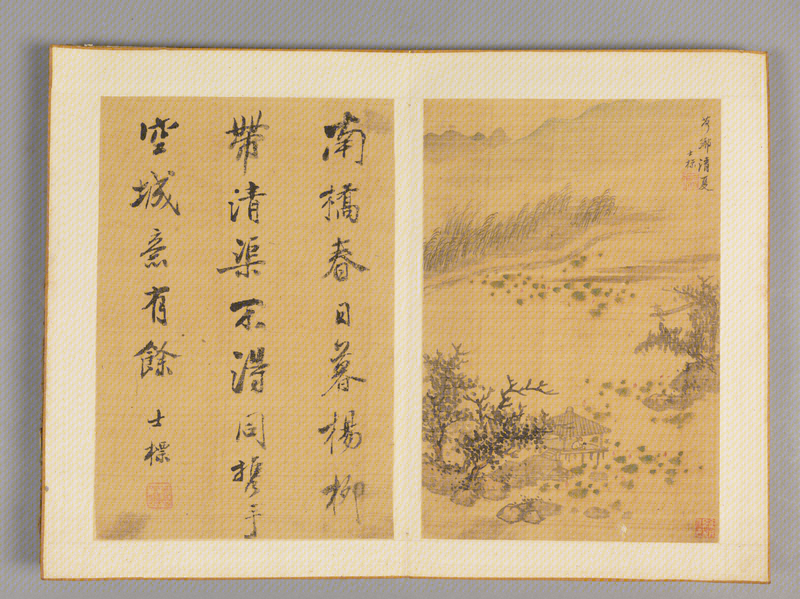 鄉清夏
士標
南橋春日暮楊柳
帶清渠不得同携手
空城意有餘
士標